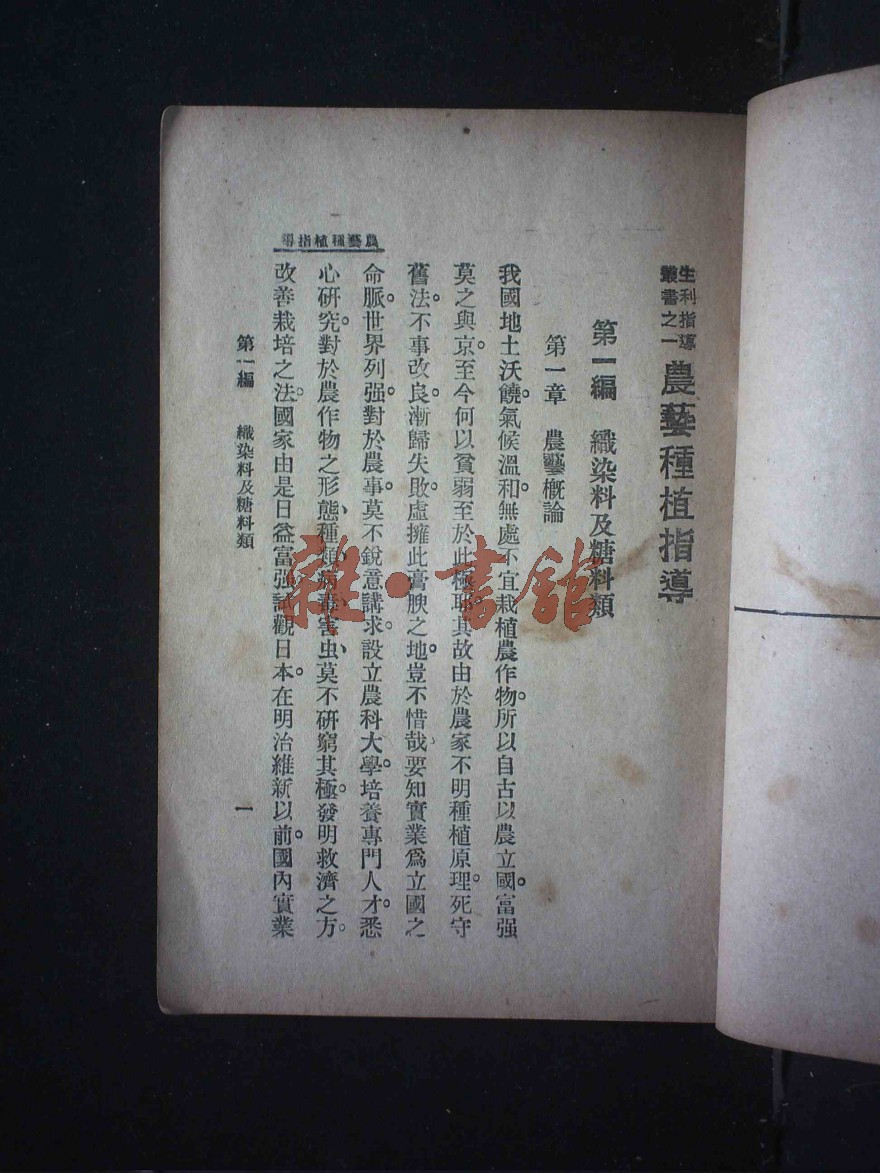 生利指導
叢書之一
農藝種植指導
第一編　織染料及糖料類
第一章　農藝概論
我國地土沃饒。氣候溫和。無處不宜栽植農作物。所以自古以農立國。富强
莫之與京。至今何以貧弱至於此極耶。其故由於農家不明種植原理。死守
舊法。不事改良。漸歸失敗。虛擁此膏腴之地。豈不惜哉。要知實業爲立國之
命脈。世界列强。對於農事。莫不銳意講求。設立農科大學。培養專門人才。悉
心研究。對於農作物之形態、種類、病毒、害虫、莫不研窮其極。發明救濟之方。
改善栽培之法。國家由是日益富强。試觀日本。在明治維新以前。國內實業
農藝種植指導
第一編　織染料及糖料類
一
雜·書館